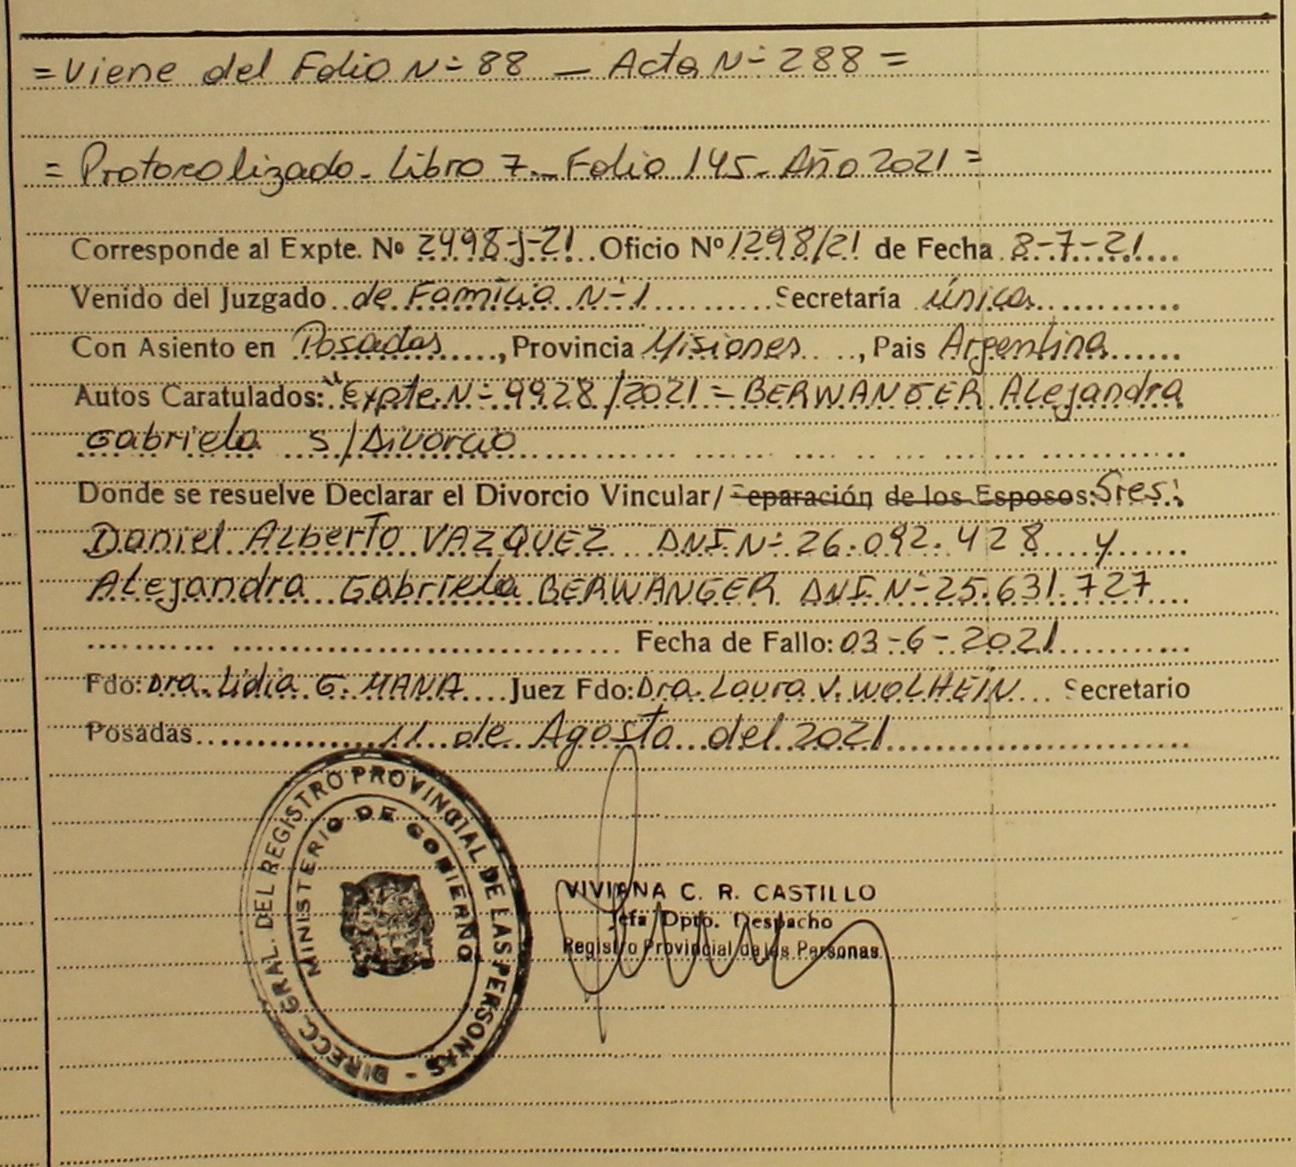 = Viene del Folio N- 88 — Acta N- 288 =
= Protocolizado. Libro 7. Folio 145. Año 2021 =
Corresponde al Expte. Nº 2498-J-21 Oficio Nº 1298/21 de Fecha 8-7-21
Venido del Juzgado de Familia N- 1 Secretaría única
Con Asiento en Posadas, Provincia Misiones, Pais Argentina
Autos Caratulados: "Expte. N- 9928/2021 - BERWANGER Alejandra
Gabriela S/Divorcio
Donde se resuelve Declarar el Divorcio Vincular/ Separación de los Esposos: Sres:
Daniel Alberto VAZQUEZ DNI. N- 26.092.428 y
Alejandra Gabriela BERWANGER DNI. N- 25.631.727
Fecha de Fallo: 03-6-2021
Fdo: Dra. Lidia G. MANA Juez Fdo: Dra. Laura V. WOLHEIN Secretario
Posadas 11 de Agosto del 2021
DIRECC. GRAL. DEL REGISTRO PROVINCIAL DE LAS PERSONAS -
MINISTERIO DE GOBIERNO
VIVIANA C. R. CASTILLO
Jefa Dpto. Despacho
Registro Provincial de las Personas